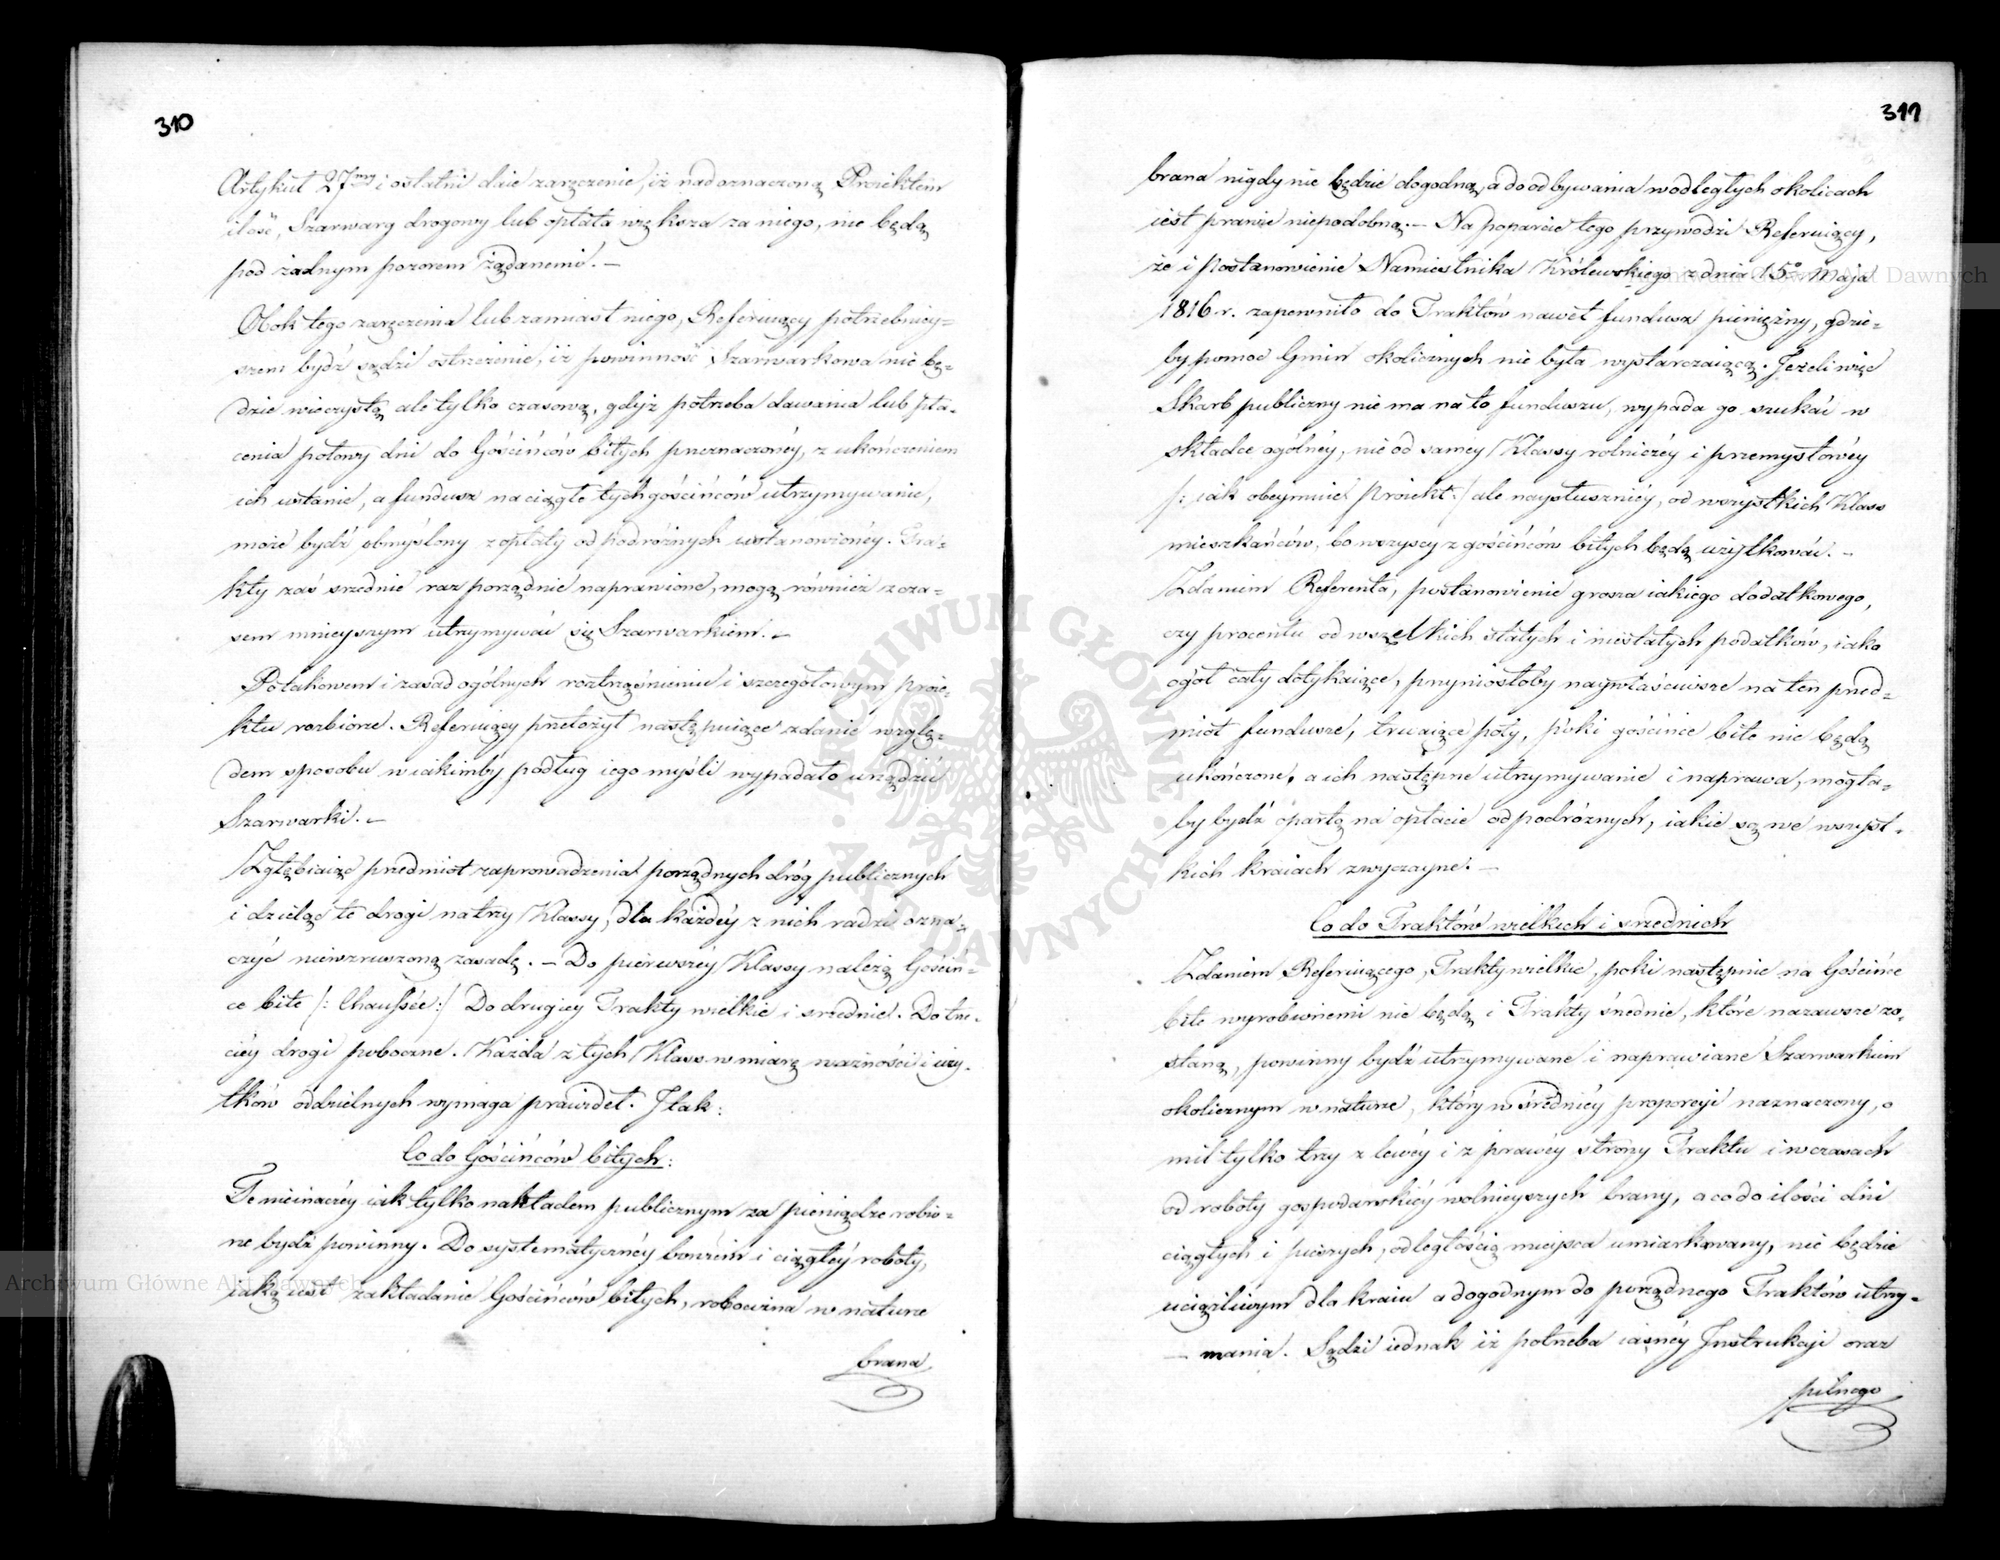 310
Artykuł 27my i ostatni daie zaręczenie, iż nad oznaczoną Proiektem
ilość, Szarwarg drogowy lub opłata większa za niego, nie będą
pod żadnym pozorem żądanemi. —
Obok tego zaręczenia lub zamiast niego, Referuiący potrzebniey=
szem bydź sądzi ostrzeżenie, iż powinność Szarwarkowa nie bę=
dzie wieczystą ale tylko czasową, gdyż potrzeba dawania lub pła=
cenia połowy dni do Gościńców bitych przeznaczonéy, z ukończeniem
ich ustanie, a fundusz na ciągłe tych gościńców utrzymywanie,
może bydź obmyślony z opłaty od podróżnych ustanowionéy. Tra=
kty zaś srzednie raz porządnie naprawione, mogą również z cza=
sem mnieyszym utrzymywać się Szarwarkiem. —
Po takowem i zasad ogólnych roztrząśnieniu i szczegółowym proie=
ktu rozbiorze. Referuiący przełożył następuiące zdanie wzglę=
dem sposobu w iakimby podług iego myśli wypadało urządzić
Szarwarki. —
Zgłębiaiąc przedmiot zaprowadzenia porządnych dróg publicznych
i dzieląc te drogi na trzy Klassy, dla każdéy z nich radzi ozna=
czyć niewzruszoną zasadę. — Do pierwszéy Klassy należą Gościń=
ce bite /: Chaussée :/ Do drugiey Trakty wielkie i srzednie. Do trze=
ciéy drogi poboczne. Każda z tych Klass w miarę ważności i uży=
tków oddzielnych wymaga prawideł. I tak:
Co do Gościńców bitych:
Te nieinaczéy iak tylko nakładem publicznym za pieniądze robio=
ne bydź powinny. Do systematycznéy bowiem i ciągłéy roboty,
iaką iest zakładanie Gościńców bitych, robocizna w naturze
brana
311
brana nigdy nie będzie dogodną, a do odbywania w odległych okolicach
iest prawie niepodobną. — Na poparcie tego przywodzi Referuiący,
że i postanowienie Namiestnika Królewskiego z dnia 15o Maja
1816 r. zapewniło do Traktów nawet fundusz pieniężny, gdzie=
by pomoc Gmin okolicznych nie była wystarczaiącą. Jeżeli więc
Skarb publiczny nie ma na to funduszu, wypada go szukać w
składce ogólnéy, nie od saméy Klassy rolniczéy i przemysłowéy
/: iak obeymuie Proiekt :/ ale naysłuszniéy, od wszystkich Klass
mieszkańców, bo wszyscy z gościńców bitych będą użytkować. —
Zdaniem Referenta, postanowienie grosza iakiego dodatkowego,
czy procentu od wszelkich stałych i niestałych podatków, iako
ogół cały dotykaiące, przyniosłoby naywłaściwsze na ten przed=
miot fundusze, trwaiące póty, póki gościńce bite nie będą
ukończone, a ich następne utrzymywanie i naprawa, mogła=
by bydź opartą na opłacie od podróżnych, iakie są we wszyst=
kich kraiach zwyczayne. —
Co do Traktów wielkich i srzednich
Zdaniem Referuiącego, Trakty wielkie, poki następnie na Gościńce
bite wyrobionemi nie będą i Trakty średnie, które nazawsze zo=
staną, powinny bydź utrzymywane i naprawiane Szarwarkiem
okolicznym w naturze, który w średniéy proporcyi naznaczony, o
mil tylko trzy z lewéy i z prawéy strony Traktu i w czasach
od roboty gospodarskiéy wolnieyszych brany, a co do ilości dni
ciągłych i pieszych, odległością mieysca umiarkowany, nie będzie
uciążliwym dla kraiu a dogodnym do porządnego Traktów utrzy=
— mania. Sądzi iednak iż potrzeba iasnéy Instrukcyi oraz
pilnego
Archiwum Główne Akt Dawnych
Archiwum Główne Akt Dawnych
ARCHIWUM GŁÓWNE · AKT DAWNYCH ·